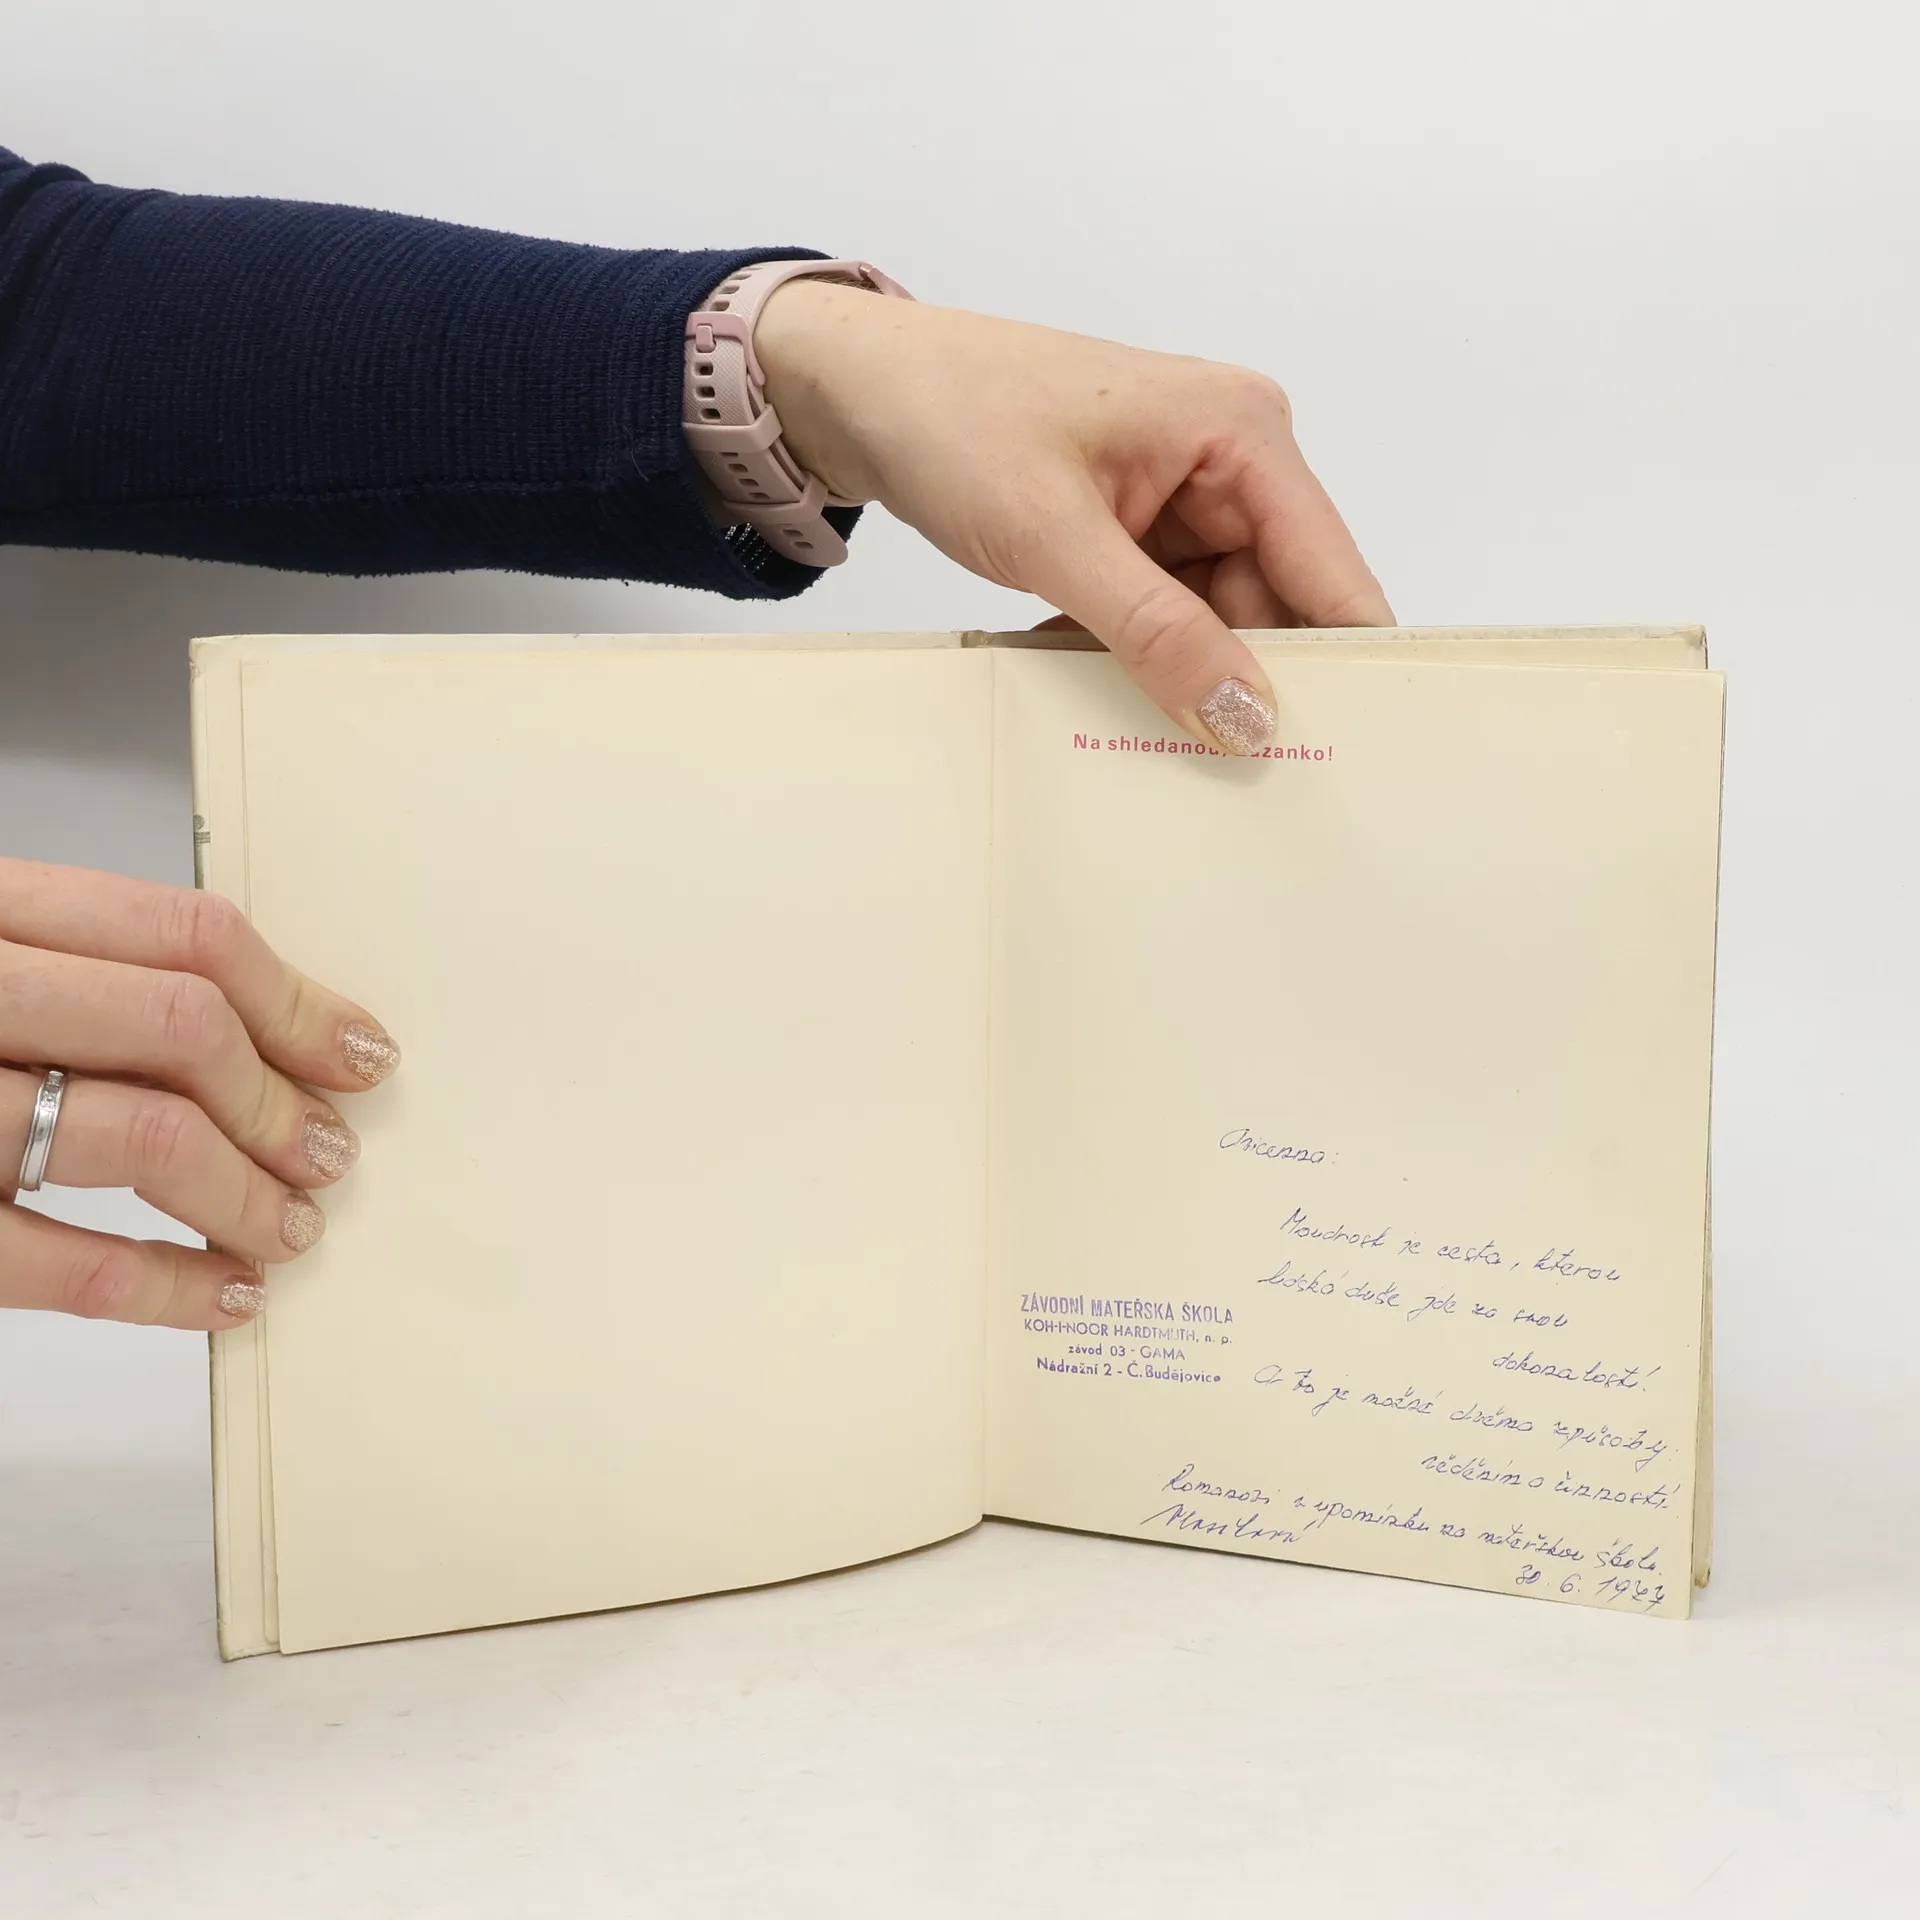 Na shledanou, zanko!
Avicenna:
Moudrost je cesta, kterou
lidská duše jde za svou
dokonalostí.
A to je možné dvěma způsoby:
věděním a činností.
ZÁVODNÍ MATEŘSKÁ ŠKOLA
KOH-I-NOOR HARDTMUTH, n. p.
závod 03 - GAMA
Nádražní 2 - Č. Budějovice
Romanovi v upomínku na mateřskou školu.
30. 6. 1977